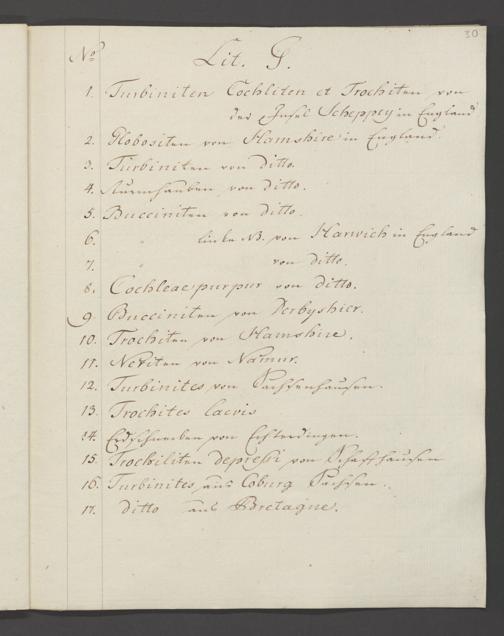 30
No Lit. G.
1. Turbiniten Cochliten et Trochiten von
der Insel Scheppey in England
2. Globositen von Hamshire in England.
3. Turbiniten von Ditto.
4. von Ditto.
5. Bucciniten von Ditto.
6. " linke NB. von Harwich in England
7. " von Ditto.
8. Cochleae purpur von Ditto.
9. Bucciniten von Derbyshier.
10. Trochiten von Hamshire.
11. Neriten von Namur.
12. Turbinites von Sachsenhausen.
13. Trochites laevis
14. Erdschnecken von Echterdingen.
15. Trochiliten depressi von Schaffhausen
16. Turbinites aus Coburg Sachsen.
17. Ditto aus Bretagne.